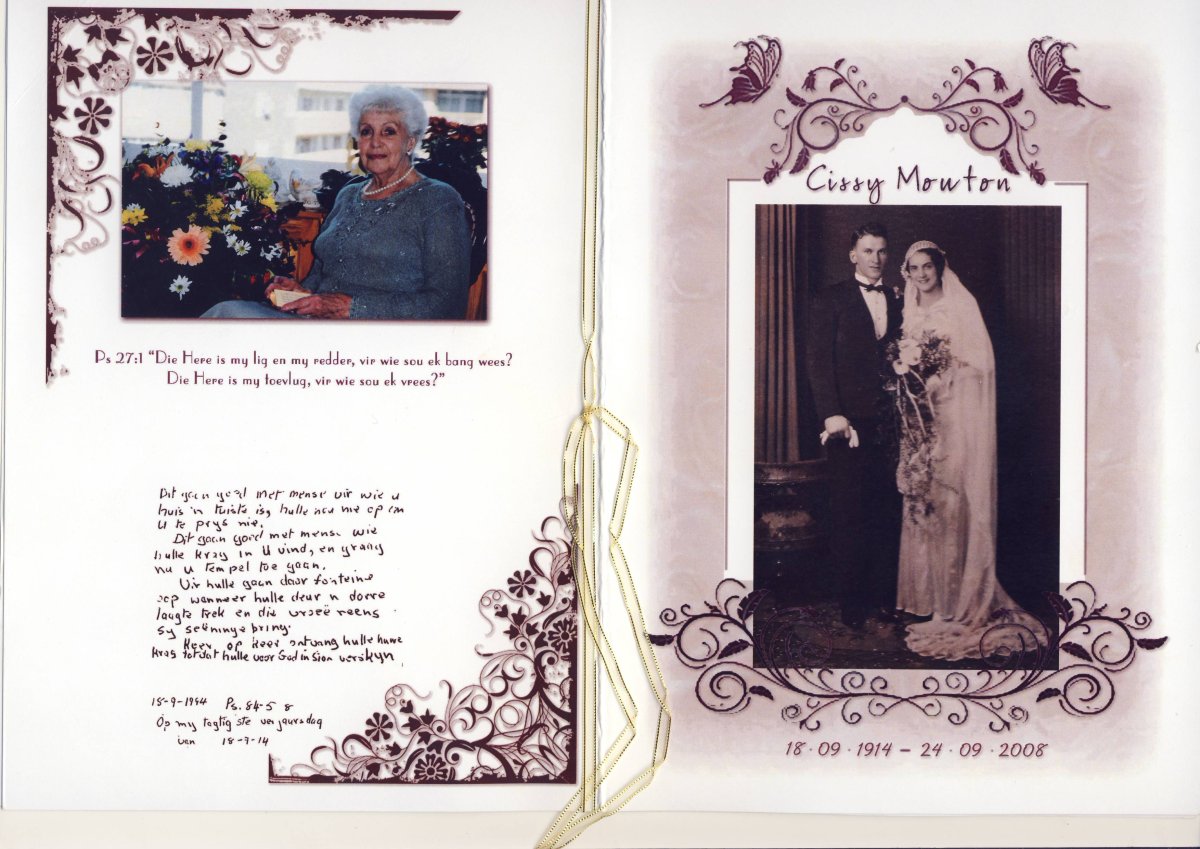 Ps 27:1 "Die Here is my lig en my redder, vir wie sou ek bang wees?
Die Here is my toevlug, vir wie sou ek vrees?"
Dit gaan goed met mense vir wie u
huis 'n tuiste is, hulle hou nie op om
U te prys nie.
Dit gaan goed met mense wie
hulle krag in U vind, en graag
na u tempel toe gaan.
Vir hulle gaan daar fonteine
oop wanneer hulle deur 'n dorre
laagte trek en die vroeë reens
sy seëninge bring.
Keer op keer ontvang hulle nuwe
krag totdat hulle voor God in Sion verskyn.
18-9-1994 Ps. 84-5 8
Op my tagtigste verjaarsdag
van 18-9-14
Cissy Mouton
18 · 09 · 1914 – 24 · 09 · 2008